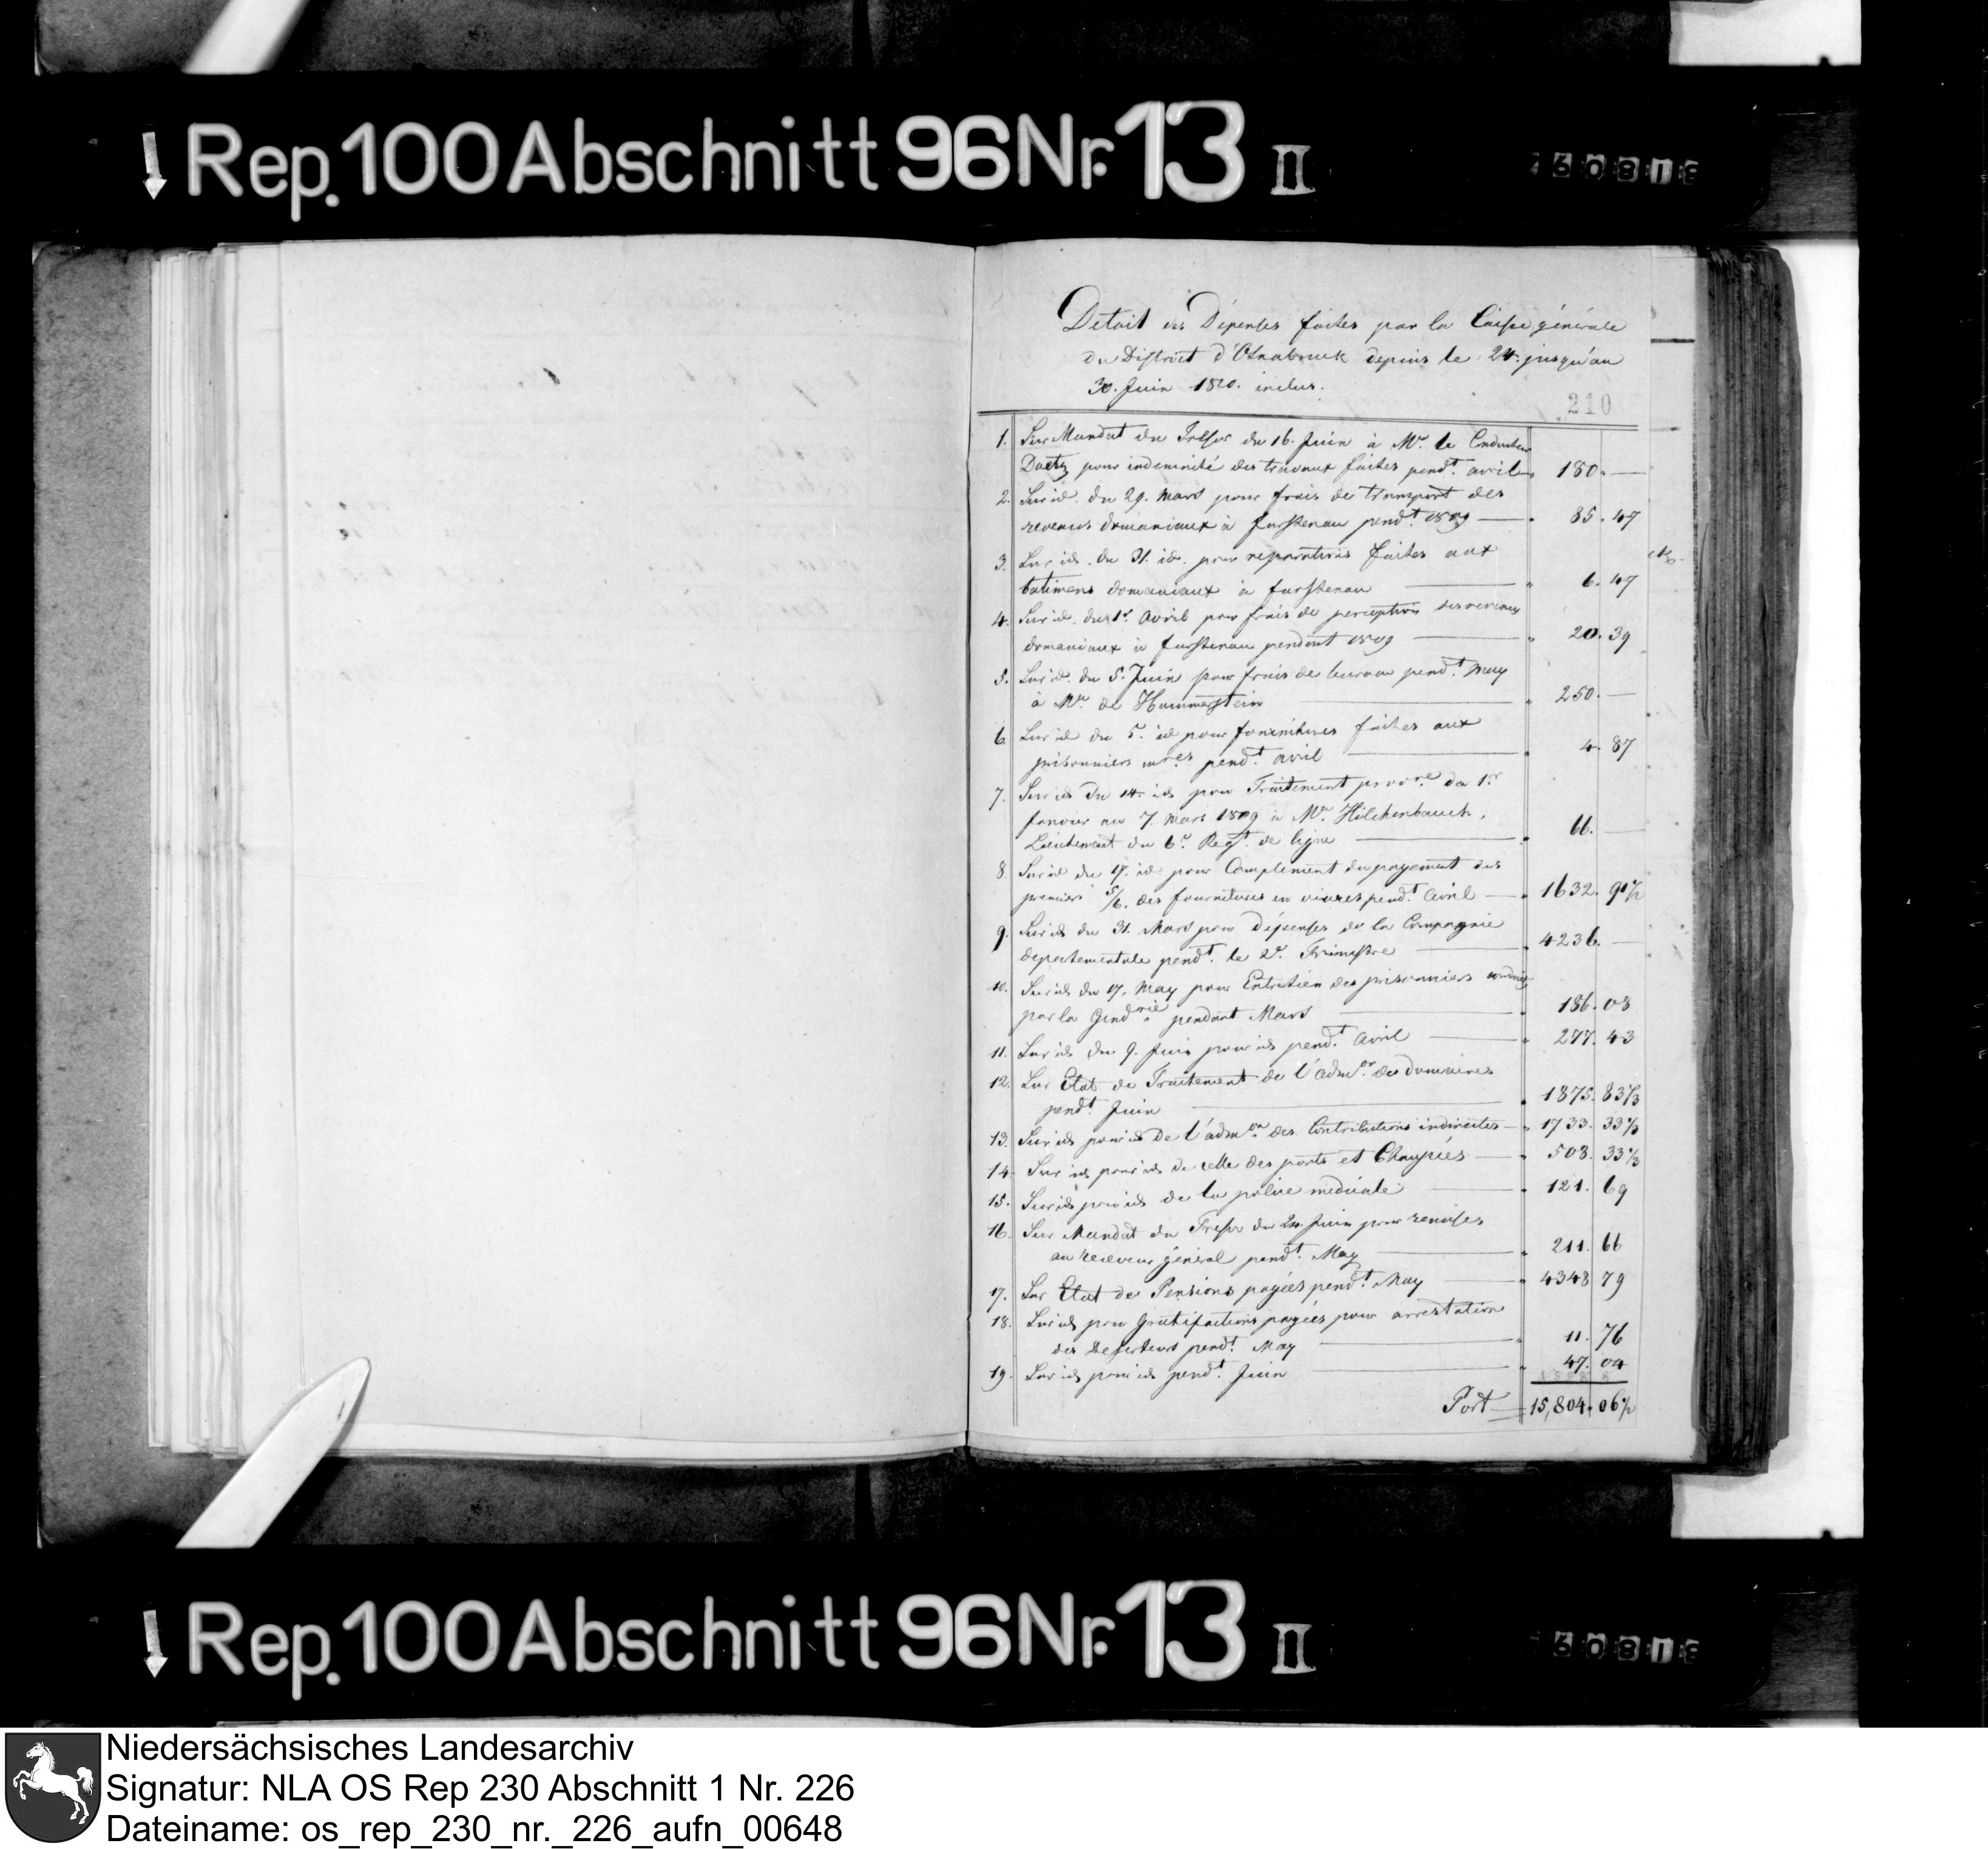 Rep. 100 Abschnitt 96 Nr. 13 II
Détail des Dépenses faites par la Caisse générale
du District d'Osnabruck depuis le 24. jusqu'au
30. Juin 1810. inclus.
210
1. Sur Mandat du Trésor du 16. Juin à Mr. le Conducteur
Daetz pour indemnité des travaux faites pendt. avril 180. —
2. Sur id. du 29. Mars pour frais de transport des
revenus domaniaux à furstenau pendt. 1809 — 85. 47
3. Sur id. du 31. id. pour reparations faites aux
batimens domaniaux à furstenau — 6. 47
4. Sur id. du 1r. Avril pour frais de perception des revenus
domaniaux à furstenau pendant 1809 — 20. 39
5. Sur id. du 5. Juin pour frais de bureau pendt. May
à Mr. de Hammerstein — 250. —
6. Sur id du 5. id pour fournitures faites aux
prisonniers pendt. avril — 4. 87
7. Sur id du 14. id pour Traitement provre. du 1r.
Janvier au 7. Mars 1809 à Mr. Hilchenbach,
Lieutenant du 6e. Regt. de ligne — 66. —
8. Sur id du 17. id. pour Complement du payement des
premiers 5/6. des fournitures en vivres pendt. Avril — 1632. 91 1/2
9. Sur id du 31. Mars pour dépenses de la Compagnie
departementale pendt. le 2e. Trimestre — 4236. —
10. Sur id du 17. May pour Entretien des prisonniers conduits
par la Gendrie. pendant Mars — 186. 08
11. Sur id du 9. Juin pour id pendt. Avril — 277. 43
12. Sur Etat de Traitement de l'Admon. des domaines
pendt. Juin — 1875. 83 1/3
13. Sur id pour id de l'admon. des Contributions indirectes — 1733. 33 1/3
14. Sur id pour id de celle des ponts et Chaussées — 508. 33 1/3
15. Sur id pour id de la police medicale — 121. 69
16. Sur Mandat du Tresor du 24. Juin pour remises
au Receveur général pendt. May — 211. 66
17. Sur Etat de Pensions payées pendt. May — 4348 79
18. Sur id pour Gratifications payées pour arrestation
des Deserteurs pendt. May — 11. 76
19. Sur id pour id pendt. Juin — 47. 04
Port — 15,804. 06 1/2
Rep. 100 Abschnitt 96 Nr. 13 II
Niedersächsisches Landesarchiv
Signatur: NLA OS Rep 230 Abschnitt 1 Nr. 226
Dateiname: os_rep_230_nr._226_aufn_00648